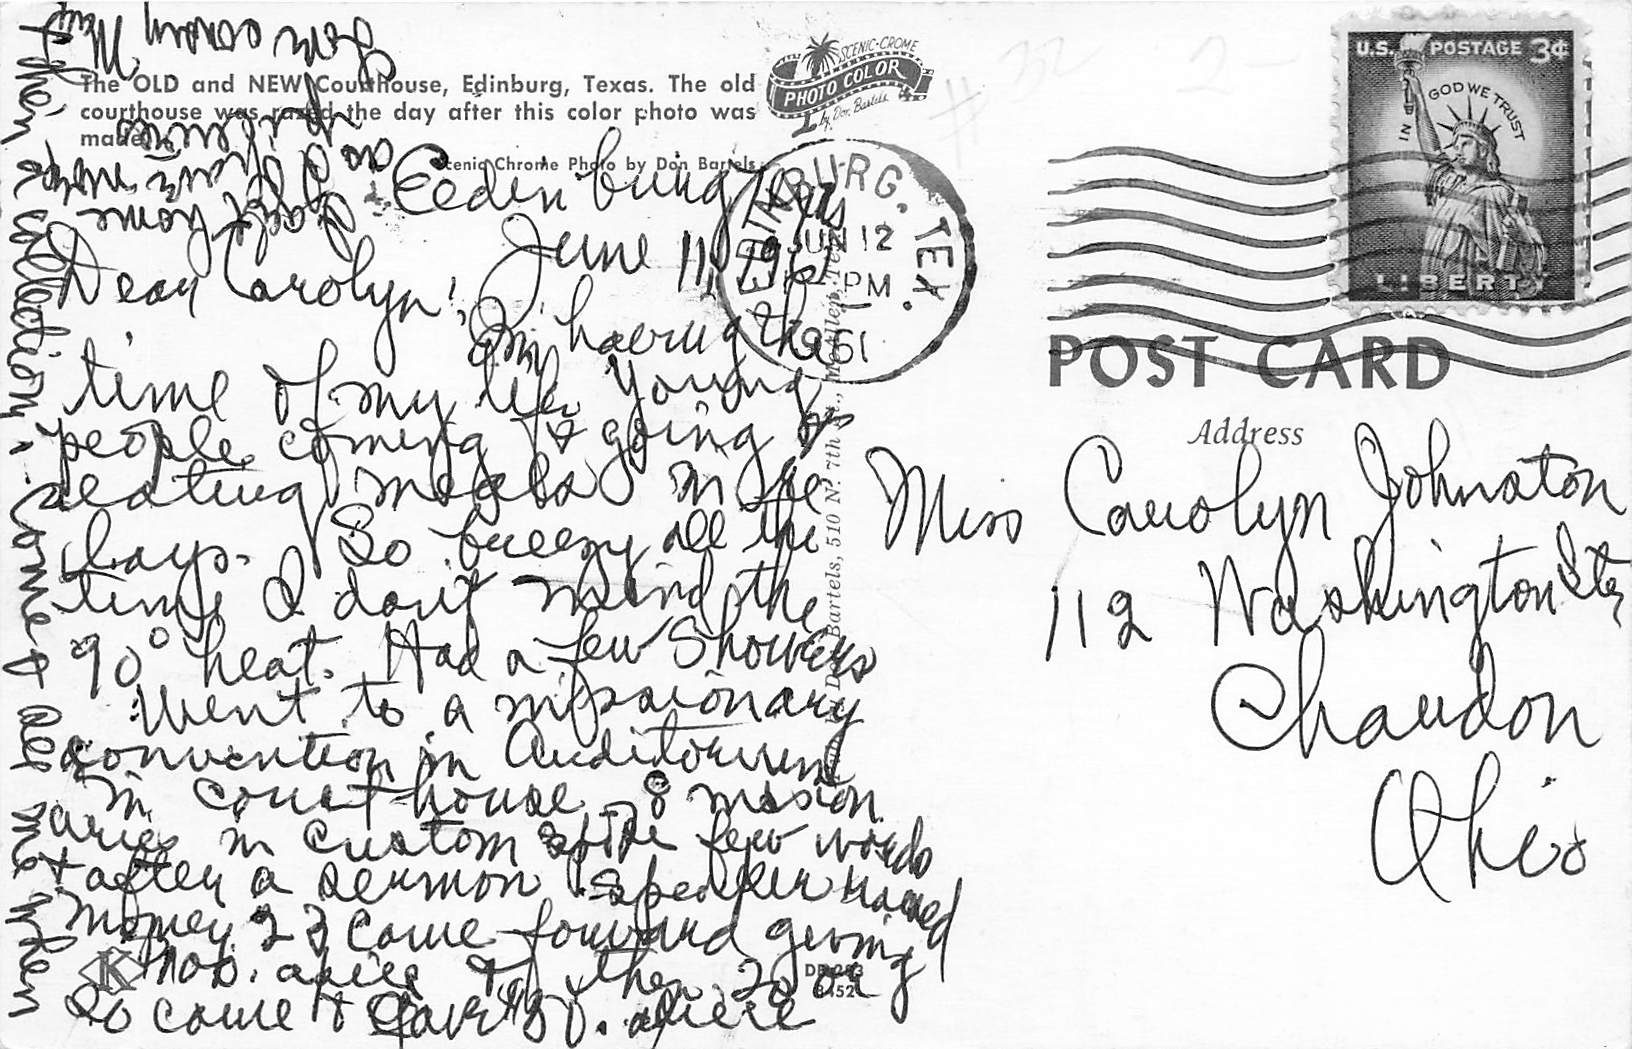 The OLD and NEW Courthouse, Edinburg, Texas. The old
courthouse was razed the day after this color photo was
made.
Scenic Chrome Photo by Don Bartels
SCENIC-CROME
PHOTO COLOR
by Don Bartels
# 32
2-
U.S. POSTAGE 3¢
IN GOD WE TRUST
LIBERTY
EDINBURG, TEX.
JUN 12
PM
1961
POST CARD
Address
Miss Carolyn Johnston
112 Washington St,
Chardon
Ohio
Eedinburg
June 11, 1961
Dear Carolyn! I'm having the
time of my life. Young
people coming & going &
eating meals
bays. So breezy all the
time I don't mind the
90° heat. Had a few showers
Went to a missionary
convention in Auditorium
in court house. 8 mission
aries in custom spoke few words
& after a sermon speaker raised
money. 23 came forward giving
then 20 or
so came & gave $50. apiece
their collection. Come & see me when
I get home
Bartels, 510 N. 7th St., McAllen, Texas
K